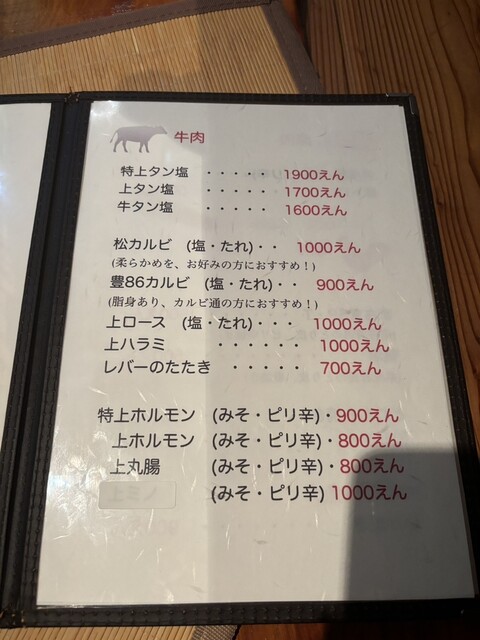 牛肉
特上タン塩 ・・・・・ 1900えん
上タン塩 ・・・・・ 1700えん
牛タン塩 ・・・・・ 1600えん
松カルビ (塩・たれ)・・ 1000えん
(柔らかめを、お好みの方におすすめ！)
豊86カルビ (塩・たれ)・・ 900えん
(脂身あり、カルビ通の方におすすめ！)
上ロース (塩・たれ)・・・ 1000えん
上ハラミ ・・・・・・ 1000えん
レバーのたたき ・・・・・ 700えん
特上ホルモン (みそ・ピリ辛)・900えん
上ホルモン (みそ・ピリ辛)・800えん
上丸腸 (みそ・ピリ辛)・800えん
(みそ・ピリ辛) 1000えん